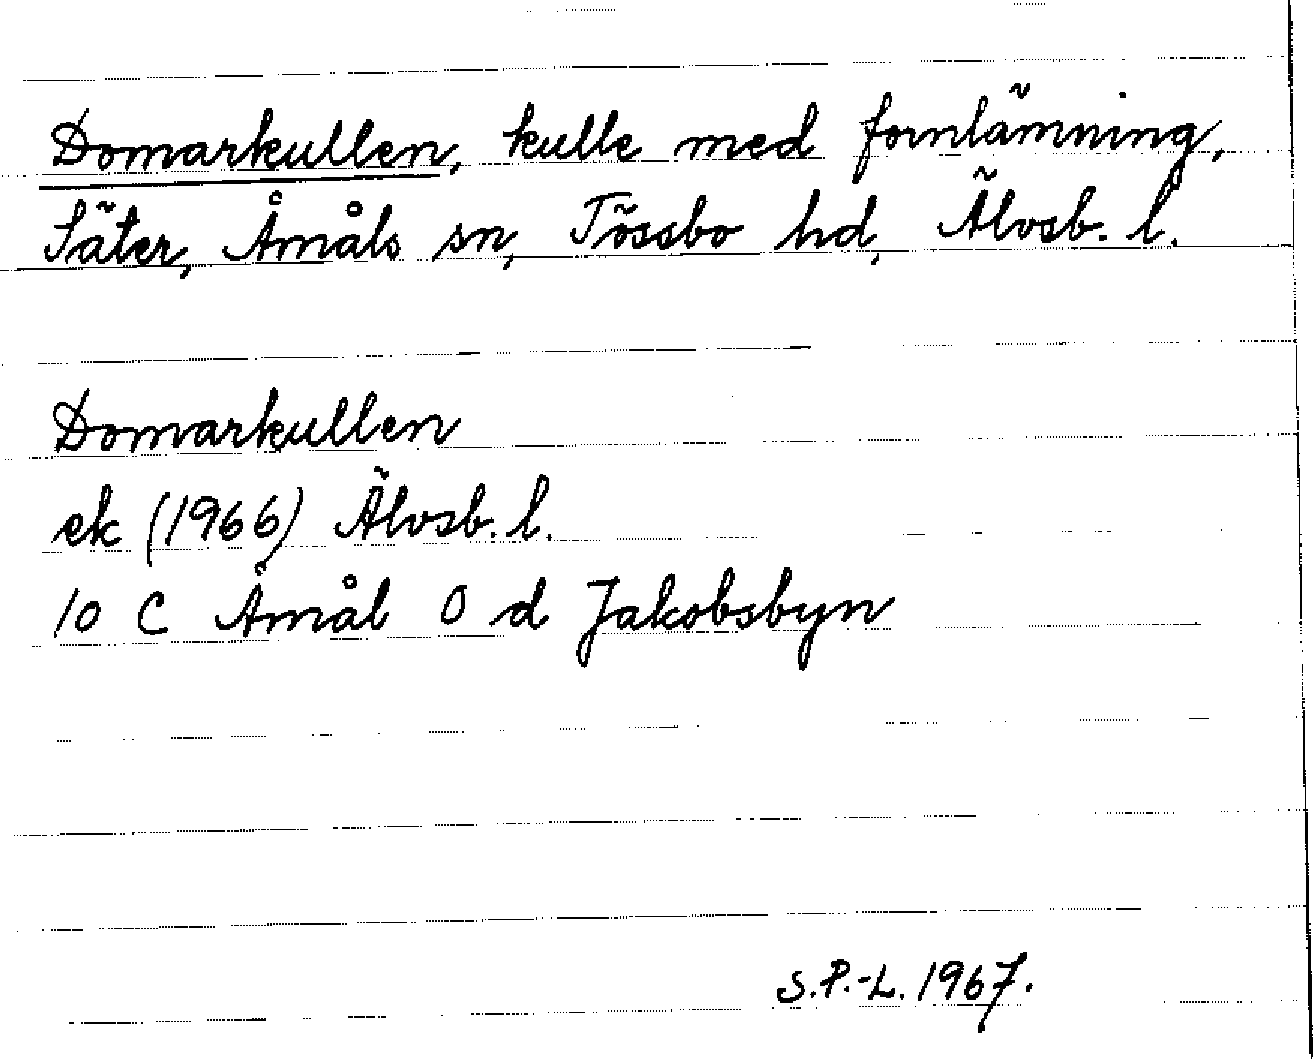 Domarkullen, kulle med fornlämning,
Säter, Åmåls sn, Tössbo hd, Älvsb. l.
Domarkullen
ek (1966) Älvsb. l.
10 C Åmål 0 d Jakobsbyn
S.P.-L. 1967.